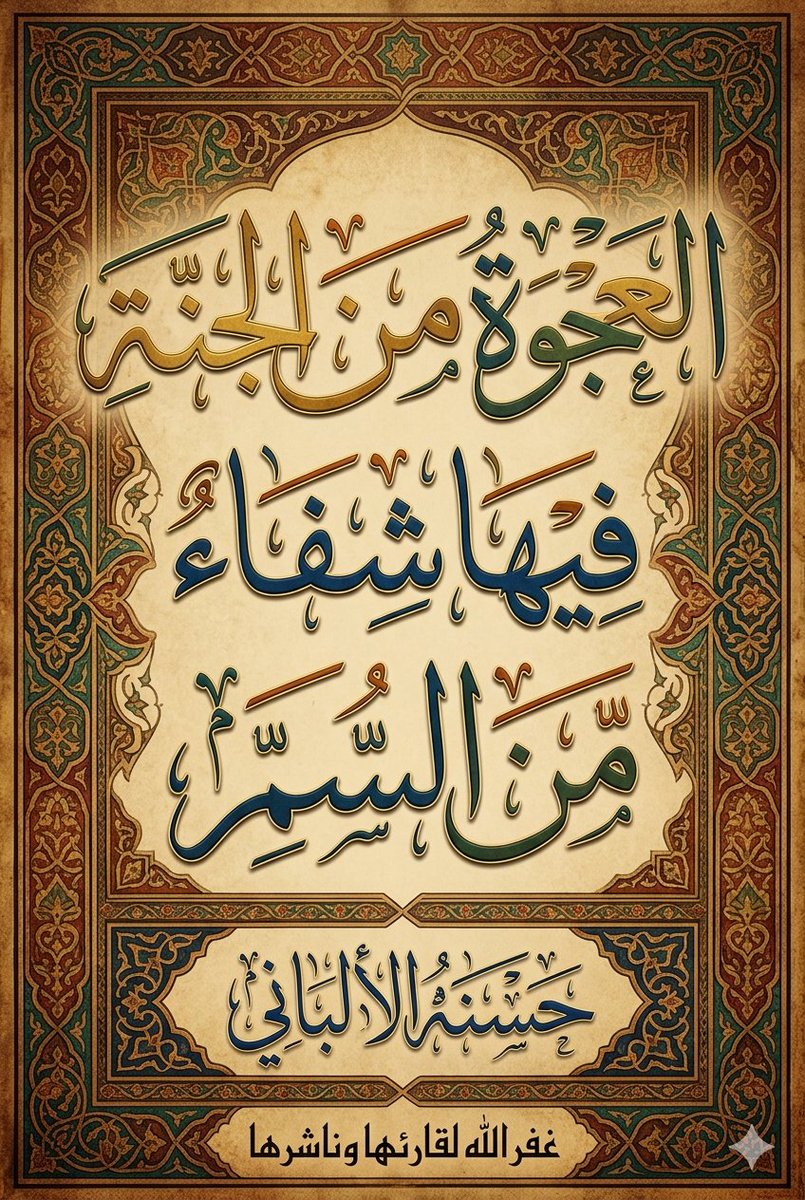 العَجْوَةُ مَنَ الجَنَّةِ
فِيهَا شِفَاءٌ
مِّنَ السُّمِّ
حَسْنَهُ الألبَانِي
غفر الله لقارئها وناشرها